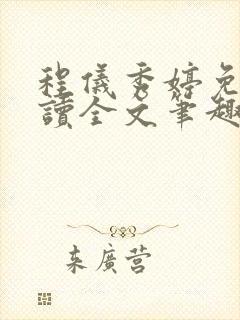 程儀秀婷免
讀全文筆趣
来廣营